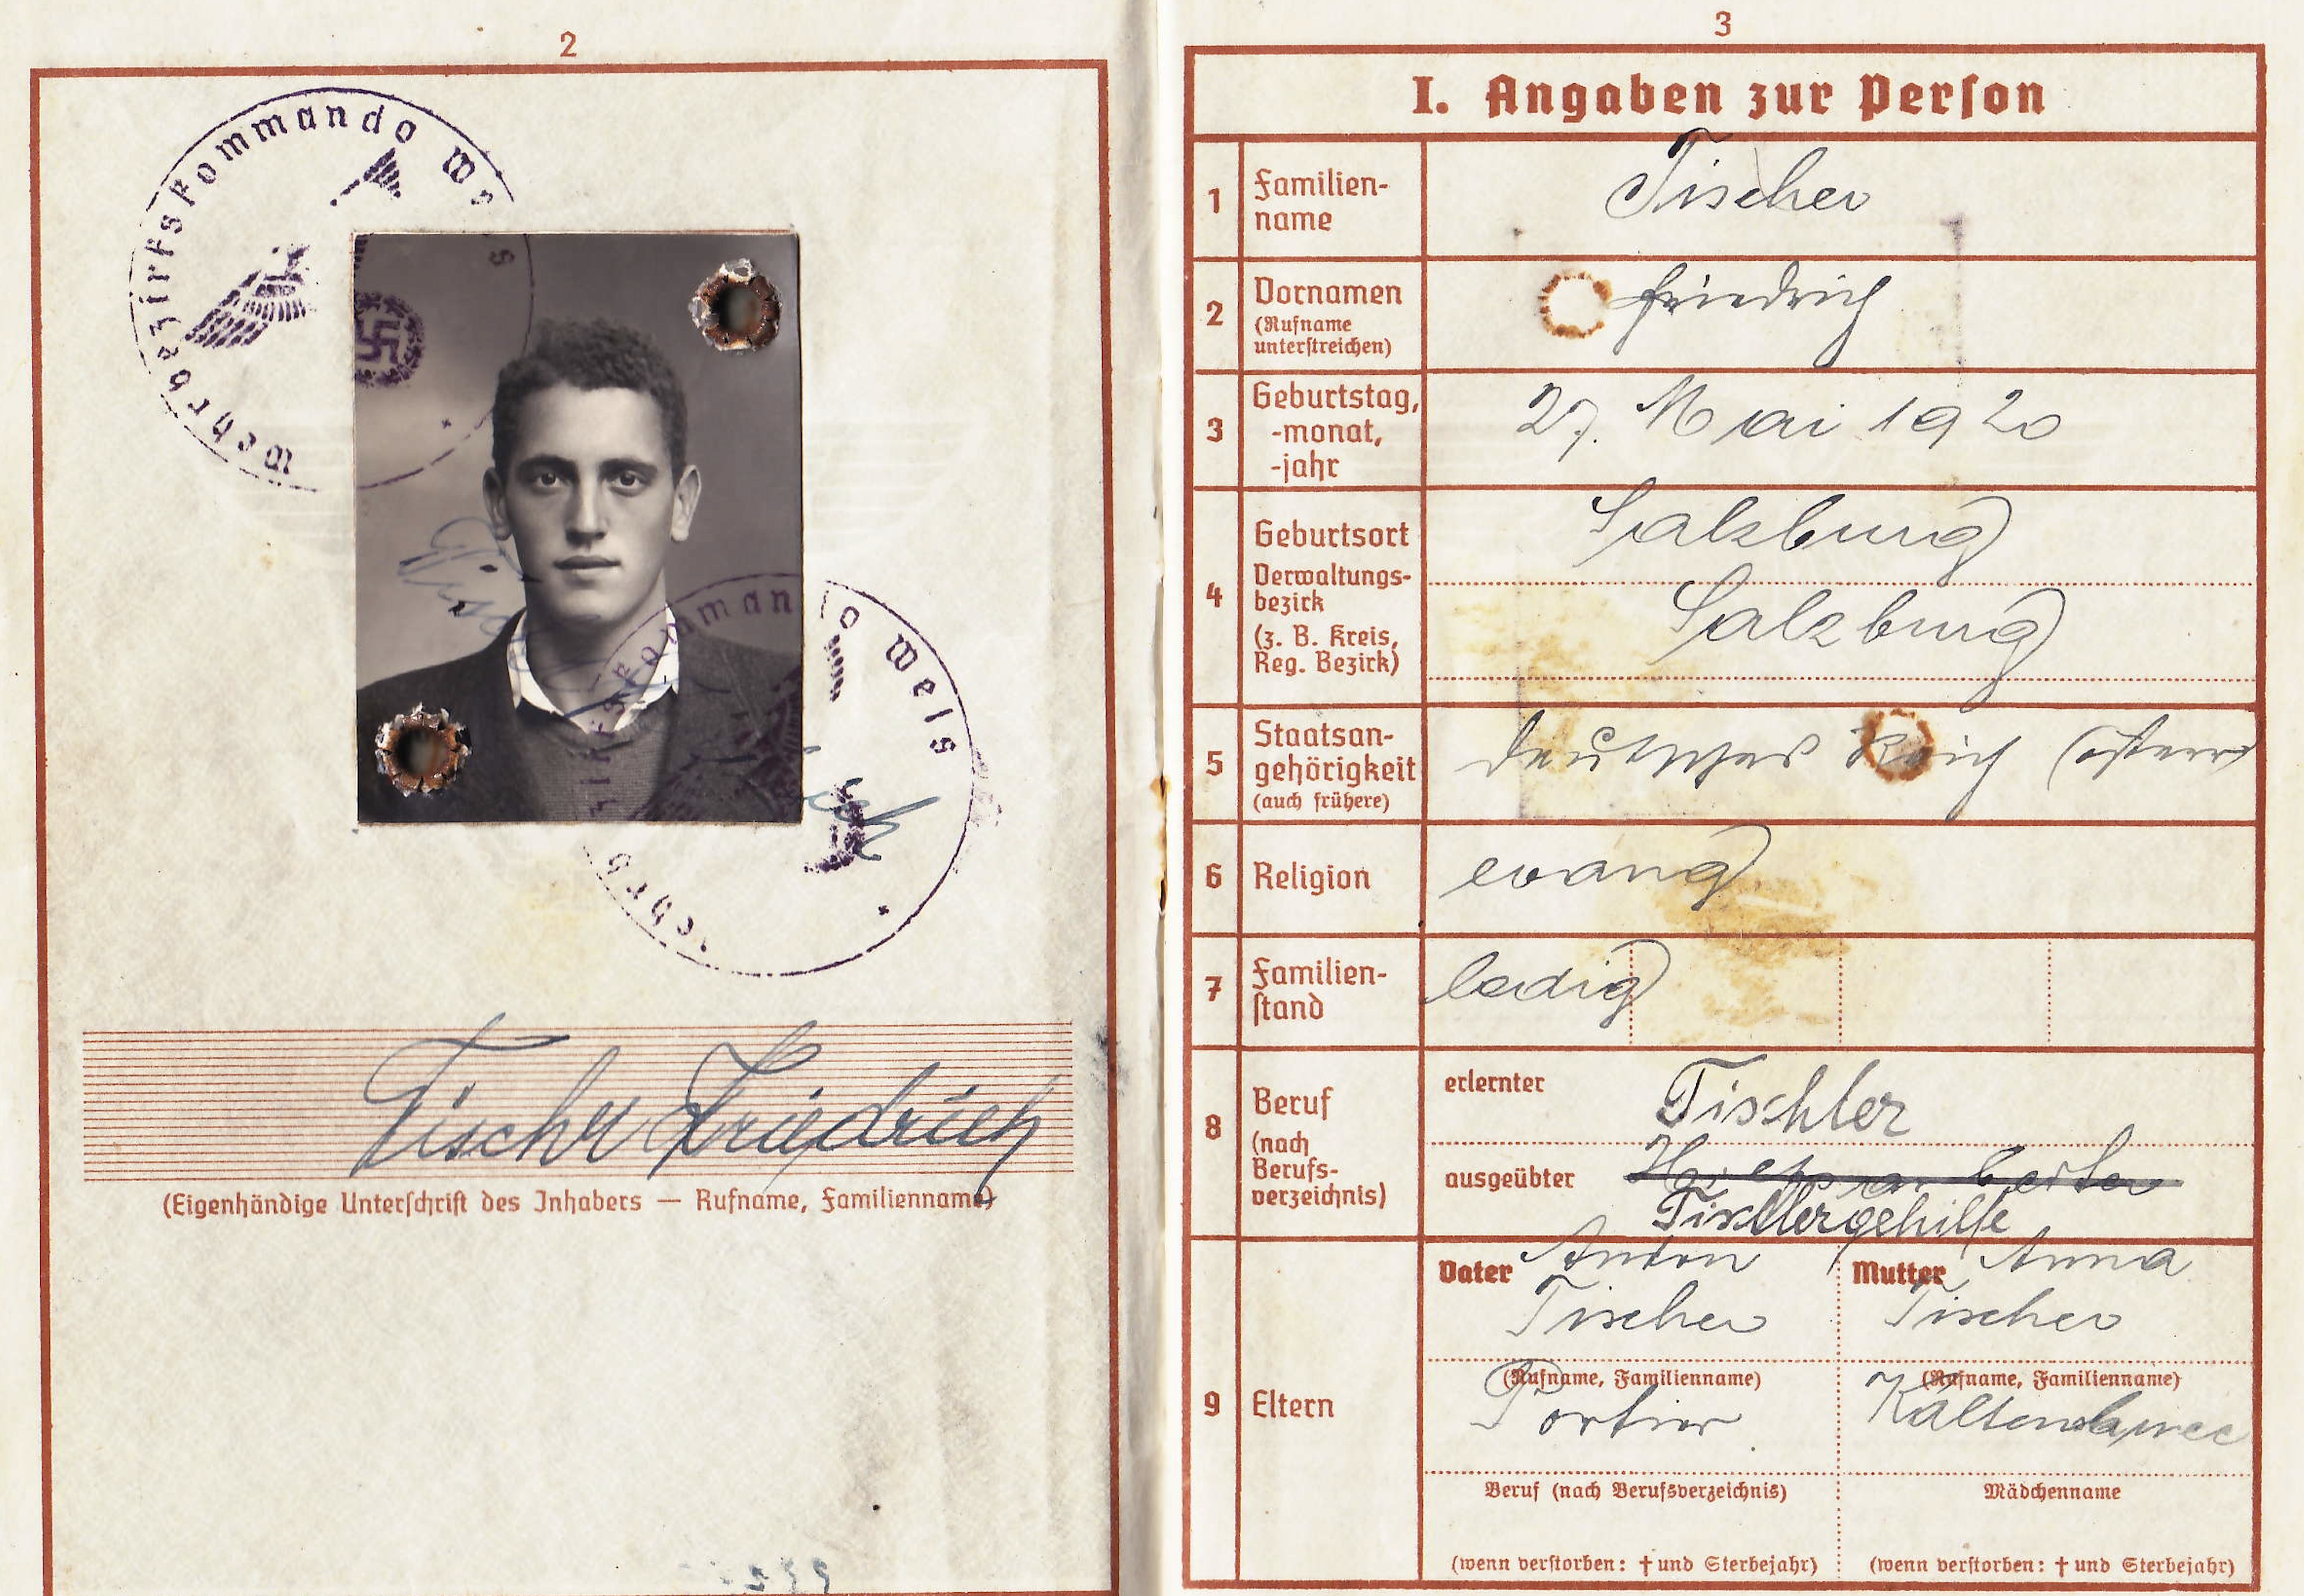 2
Wehrbezirkskommando Wels
Wehrbezirkskommando Wels
Tischer Friedrich
(Eigenhändige Unterschrift des Inhabers — Rufname, Familienname)
3
I. Angaben zur Person
1 Familien-
name
Tischer
2 Vornamen
(Rufname
unterstreichen)
Friedrich
3 Geburtstag,
-monat,
-jahr
27. Mai 1920
4 Geburtsort
Verwaltungs-
bezirk
(z. B. Kreis,
Reg. Bezirk)
Salzburg
Salzburg
5 Staatsan-
gehörigkeit
(auch frühere)
deutsches Reich (österr
6 Religion
evang
7 Familien-
stand
ledig
8 Beruf
(nach
Berufs-
verzeichnis)
erlernter Tischler
ausgeübter
Tischlergehilfe
9 Eltern
Vater Anton
Tischer
(Rufname, Familienname)
Portier
Beruf (nach Berufsverzeichnis)
(wenn verstorben: † und Sterbejahr)
Mutter Anna
Tischer
(Rufname, Familienname)
Mädchenname
(wenn verstorben: † und Sterbejahr)